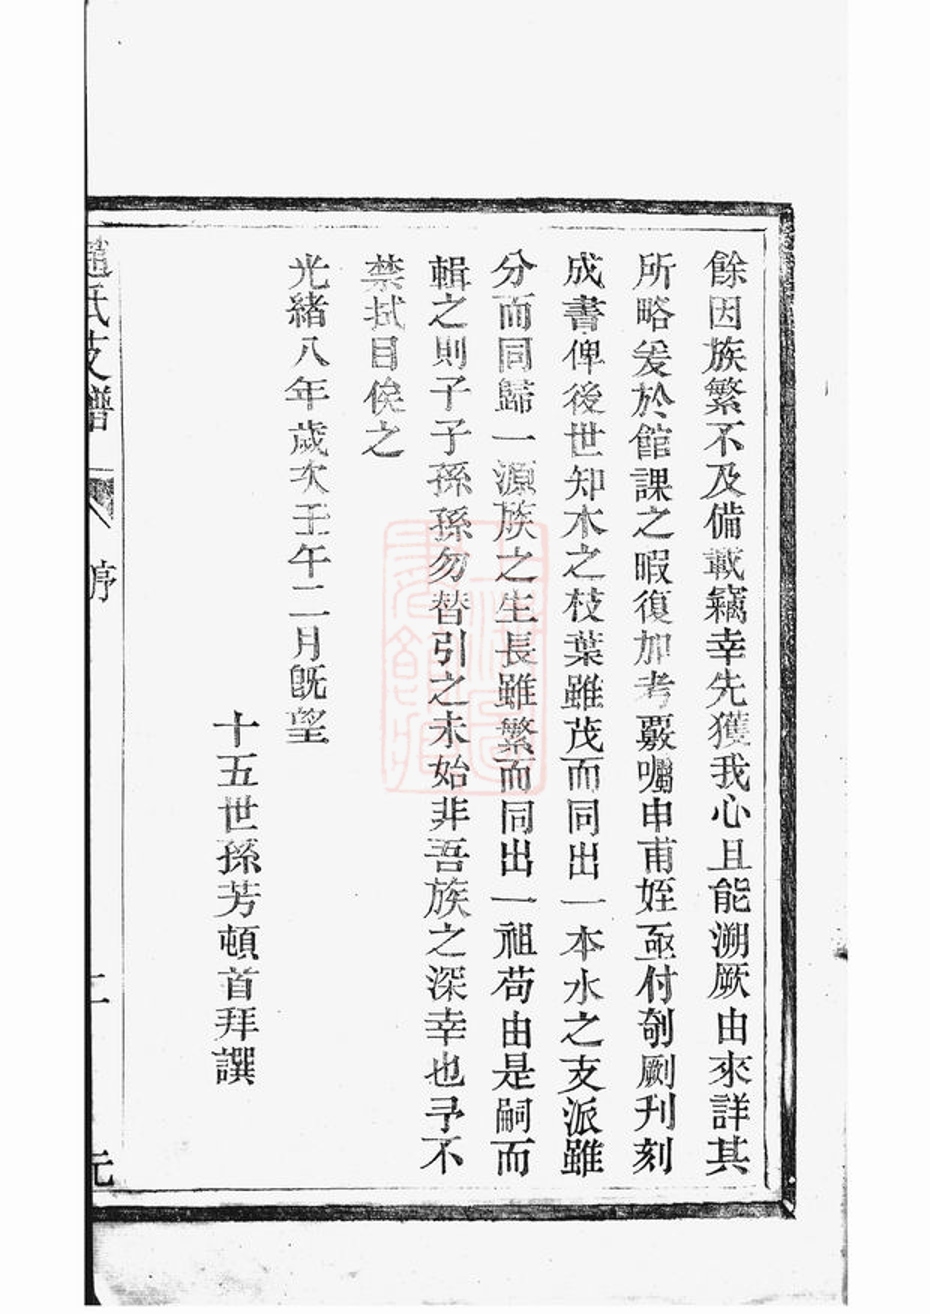 餘因族繁不及備載竊幸先獲我心且能溯厥由來詳其
所略爰於館課之暇復加考覈囑申甫姪亟付剞劂刋刻
成書俾後世知木之枝葉雖茂而同出一本水之支派雖
分而同歸一源族之生長雖繁而同出一祖苟由是嗣而
輯之則子子孫孫勿替引之未始非吾族之深幸也予不
禁拭目俟之
光緒八年歲次壬午二月旣望
十五世孫芳頓首拜譔
趙氏支譜
序
二
元